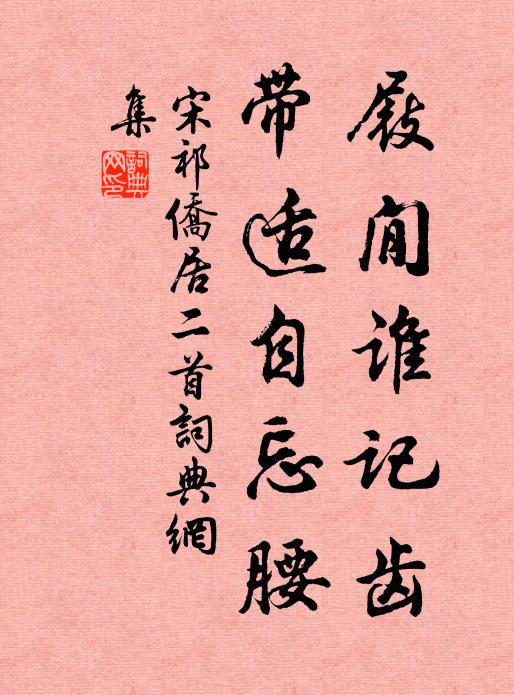 屐闲谁记齿
带适自忘腰
宋祁僑居二首詞典網
集
詞典网印